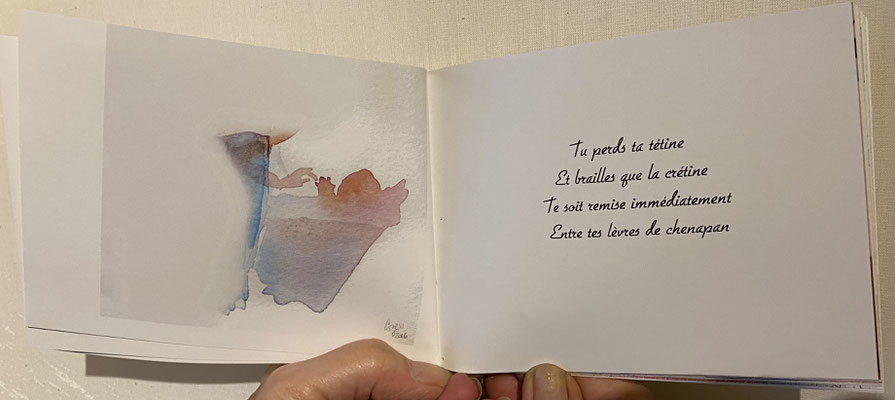 Tu perds ta tétine
Et brailles que la crétine
Te soit remise immédiatement
Entre tes lèvres de chenapan